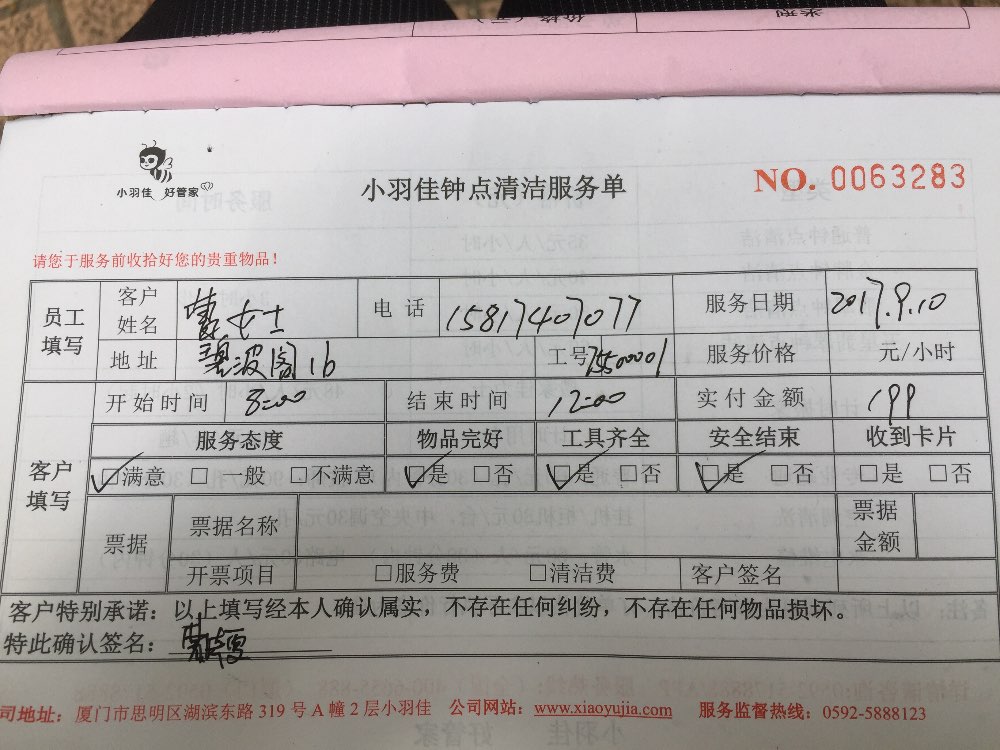 价格（元） 类型
小羽佳 好管家
小羽佳钟点清洁服务单
NO. 0063283
请您于服务前收拾好您的贵重物品！
员工填写 客户姓名 女士 电话 15817407077 服务日期 2017.9.10
地址 碧波阁16 工号 7550001 服务价格 元/小时
客户填写 开始时间 8:00 结束时间 12:00 实付金额 199
服务态度 物品完好 工具齐全 安全结束 收到卡片
☑满意 □一般 □不满意 ☑是 □否 ☑是 □否 ☑是 □否 □是 □否
票据 票据名称 票据金额
开票项目 □服务费 □清洁费 客户签名
客户特别承诺：以上填写经本人确认属实，不存在任何纠纷，不存在任何物品损坏。
特此确认签名：
司地址：厦门市思明区湖滨东路 319 号 A 幢 2 层小羽佳 公司网站：www.xiaoyujia.com 服务监督热线：0592-5888123